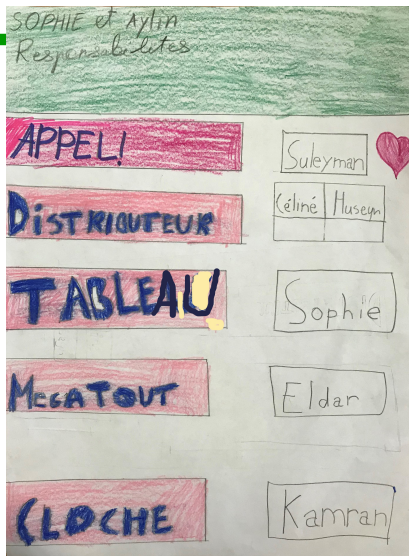 SOPHIE et Aylin
Responsabilités
APPEL! Suleyman
DISTRIBUTEUR Céliné Huseyn
TABLEAU Sophie
MEGATOUT Eldar
CLOCHE Kamran